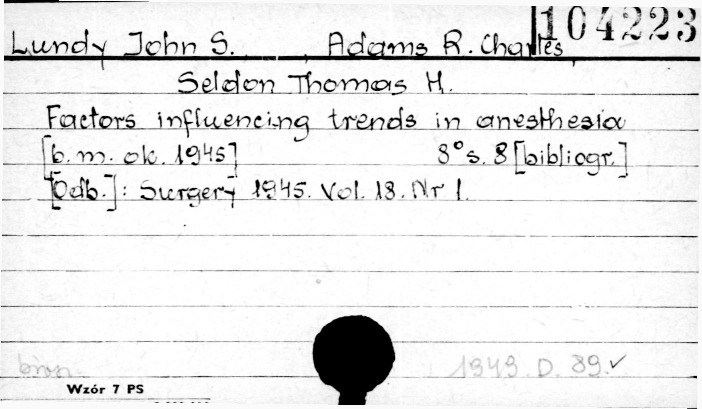 104223
Lundy John S., Adams R. Charles,
Seldon Thomas H.
Factors influencing trends in anesthesia
[b.m. ok. 1945] 8° s. 8 [bibliogr.]
[Odb.]: Surgery 1945. Vol. 18. Nr 1.
1949. D. 89. ✓
Wzór 7 PS